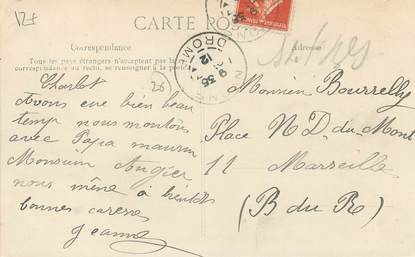 127
CARTE POS
Correspondance
Adresse
Tous les pays étrangers n'acceptent pas la
correspondance au recto, se renseigner à la poste
DROME
26
Charlot
Avons eu bien beau
temps nous montons
avec Papa
Monsieur Augier
nous mène à bientôt
bonnes caresses
Jeanne
Monsieur Bourrelly
Place N.D. du Mont
11 Marseille
(B du R)